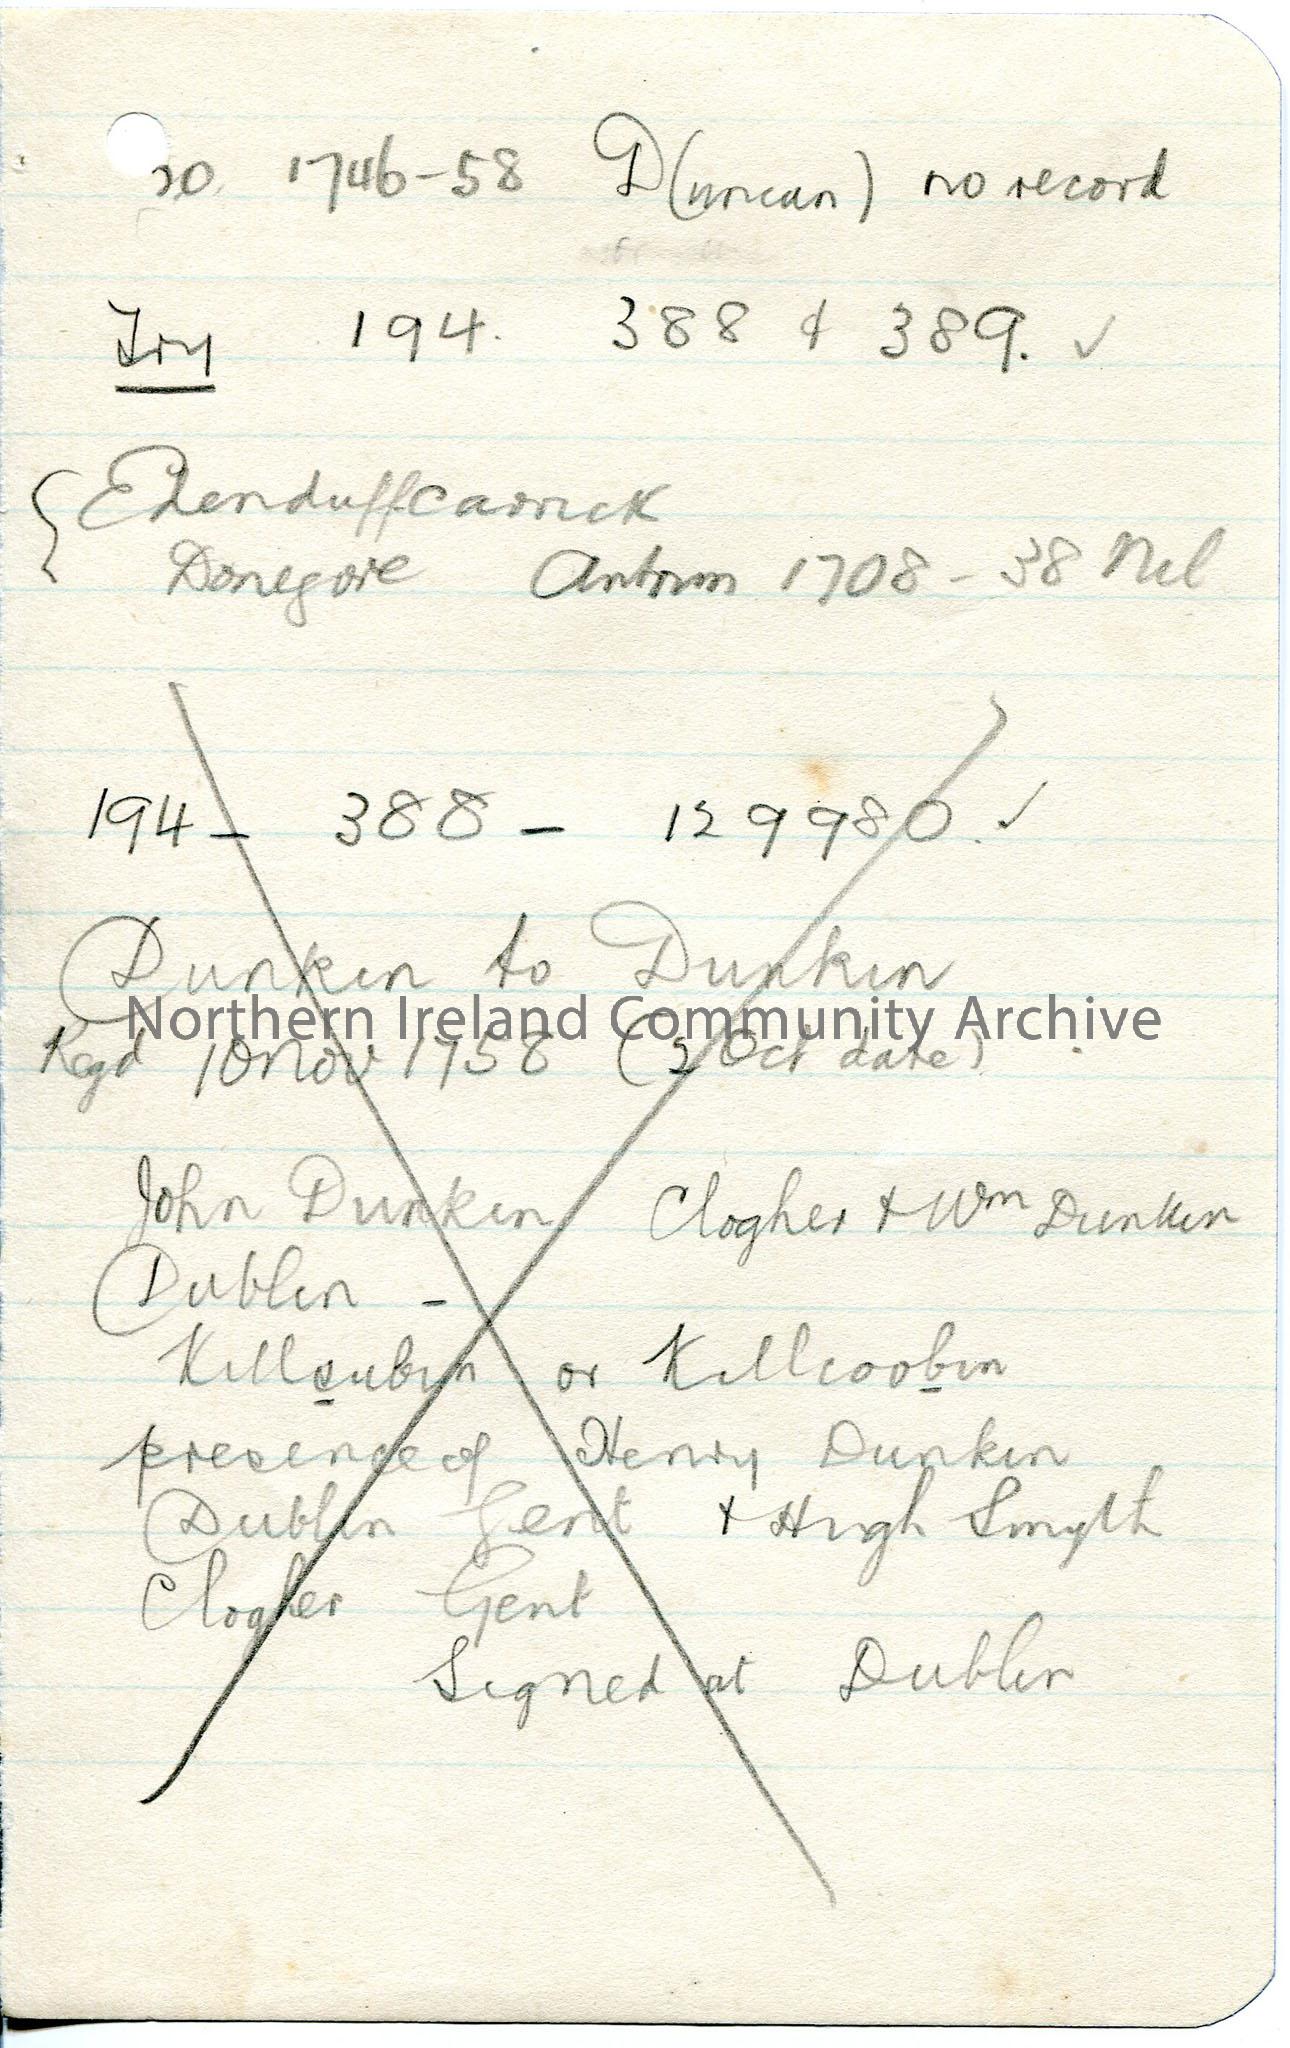 1746-58 D(uncan) no record
Try 194. 388 & 389. ✓
Edenduffcarrick
Donegore Antrim 1708-38 Nil
194 - 388 - 129980. ✓
Dunkin to Dunkin
Northern Ireland Community Archive
Regd 10 Nov 1758 (5 Oct date)
John Dunkin Clogher + Wm Dunkin
Dublin -
Killcubin or Killcoobin
presence of Henry Dunkin
Dublin Gent + Hugh Smyth
Clogher Gent
Signed at Dublin